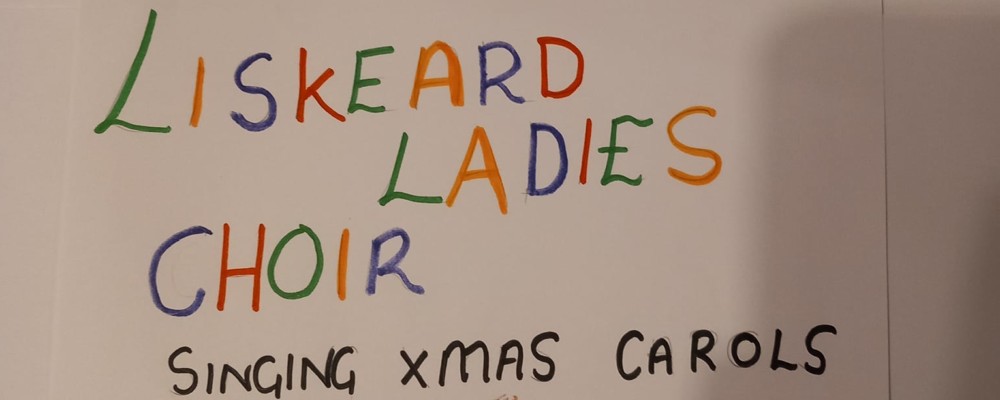 LISKEARD
LADIES
CHOIR
SINGING XMAS CAROLS